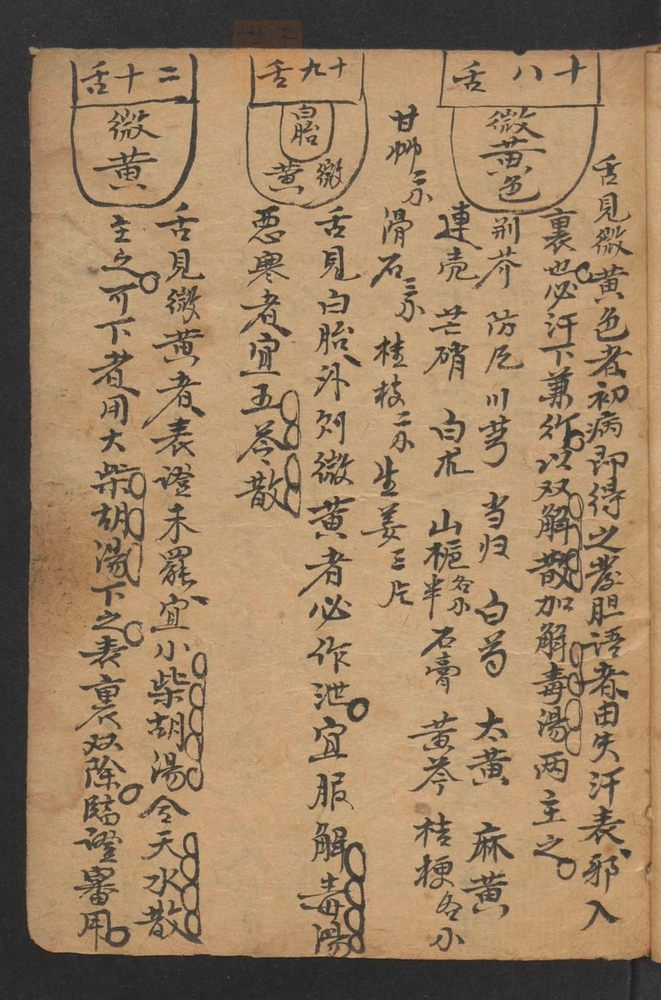 十八舌
微黄色
舌見微黄色者初病即得之發胆語者由失汗表邪入
裏也必汗下兼行以双解散加解毒湯两主之
荆芥 防风 川芎 当归 白芍 大黄 麻黄
連壳 芒硝 白朮 山梔各小半 石膏 黄芩 桔梗各小
甘草二小 滑石三小 桂枝二小 生姜三片
十九舌
白胎
微黄
舌見白胎外則微黄者必作泄宜服解毒湯
惡寒者宜五苓散
二十舌
微黄
舌見微黄者表證未罷宜小柴胡湯合天水散
主之可下者用大柴胡湯下之表裏双除臨證審用